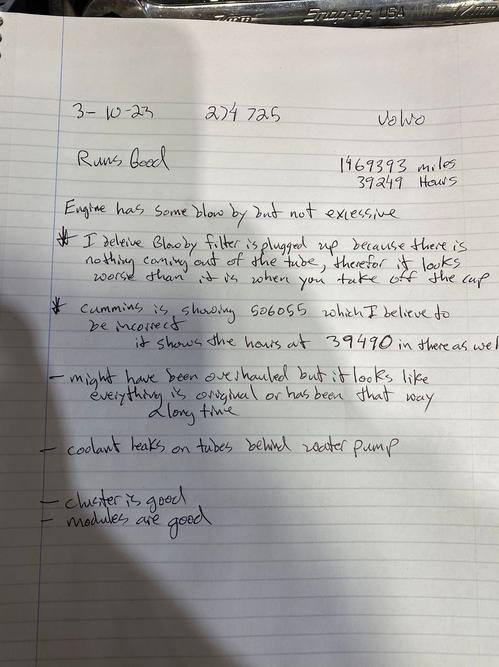 Snap-on USA
3-10-23 274725 Volvo
Runs Good 1469393 miles
39249 Hours
Engine has some blow by but not exessive
* I beleive Blowby filter is plugged up because there is
nothing coming out of the tube, therefor it looks
worse than it is when you take off the cap
* Cummins is showing 506055 which I believe to
be incorrect
it shows the hours at 39490 in there as well
- might have been overhauled but it looks like
everything is original or has been that way
a long time
- coolant leaks on tubes behind water pump
- cluster is good
- modules are good